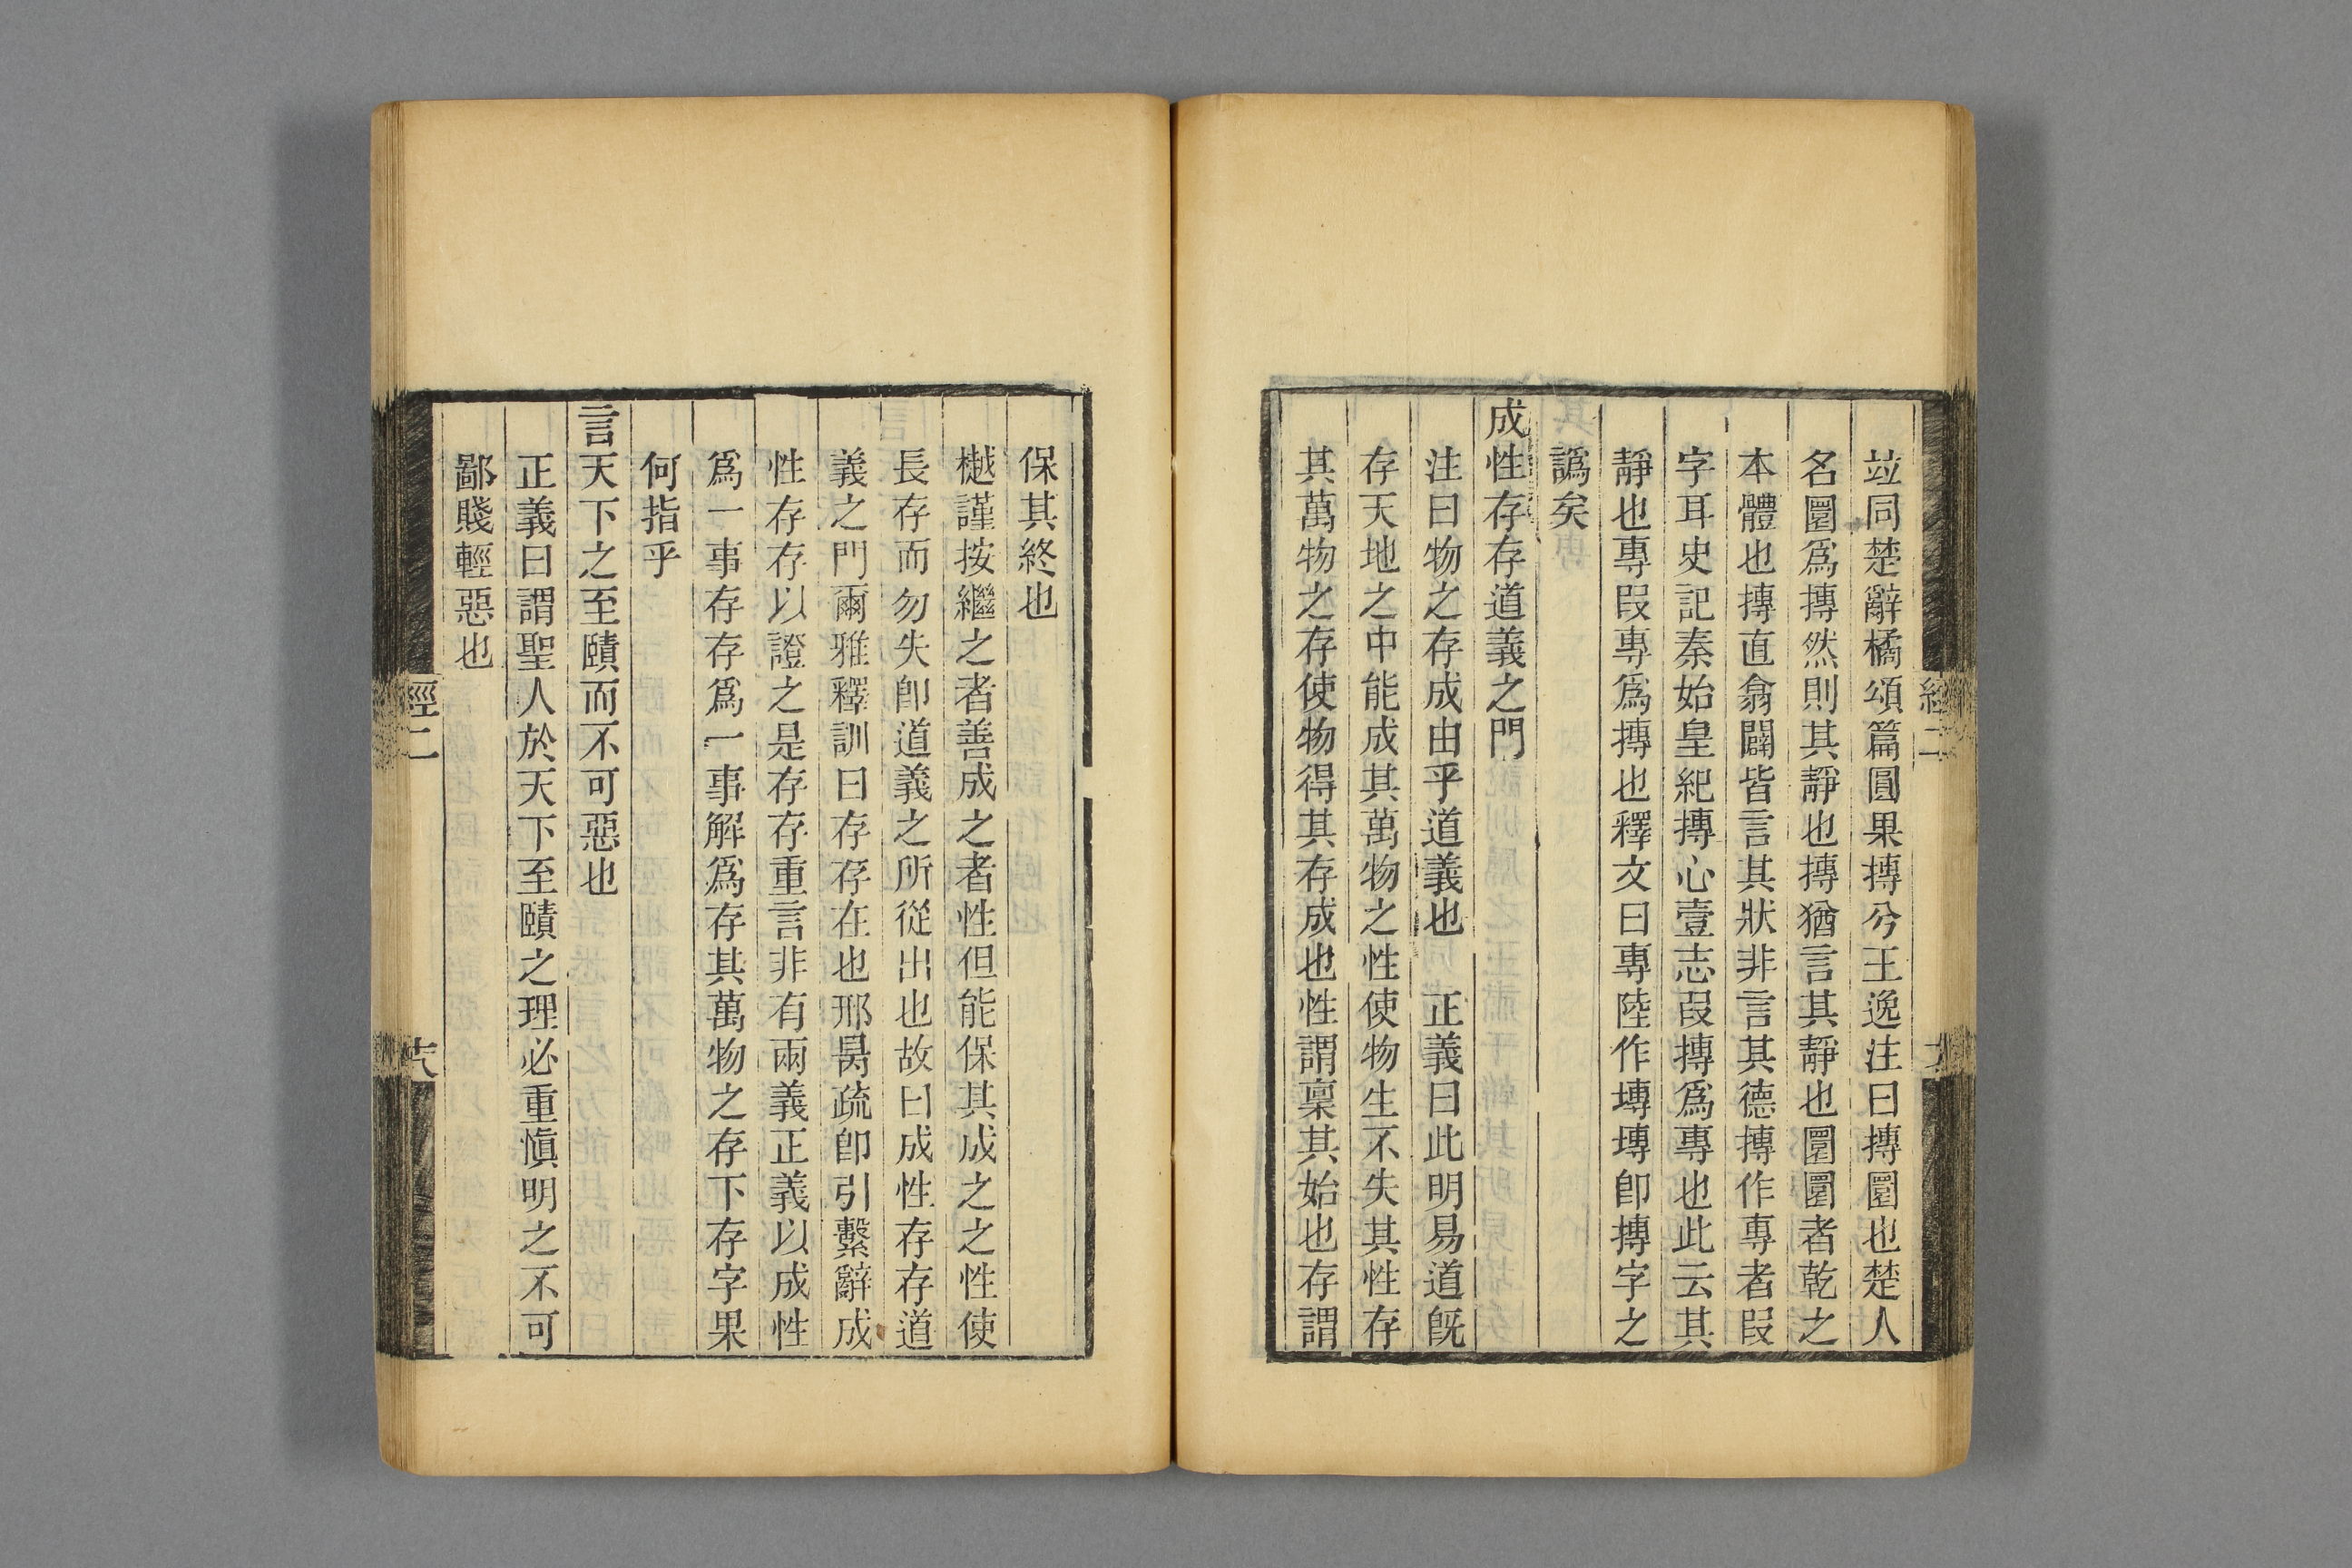 竝同楚辭橘頌篇圓果摶兮王逸注曰摶圜也楚人
名圜爲摶然則其靜也摶猶言其靜也圜圜者乾之
本體也摶直翕闢皆言其狀非言其德摶作專者叚
字耳史記秦始皇紀摶心壹志叚摶爲專也此云其
靜也專叚專爲摶也釋文曰專陸作塼塼卽摶字之
譌矣
成性存存道義之門
注曰物之存成由乎道義也　正義曰此明易道旣
存天地之中能成其萬物之性使物生不失其性存
其萬物之存使物得其存成也性謂稟其始也存謂
保其終也
樾謹按繼之者善成之者性但能保其成之之性使
長存而勿失卽道義之所從出也故曰成性存存道
義之門爾雅釋訓曰存存在也邢昺疏卽引繫辭成
性存存以證之是存存重言非有兩義正義以成性
爲一事存存爲一事解爲存其萬物之存下存字果
何指乎
言天下之至賾而不可惡也
正義曰謂聖人於天下至賾之理必重愼明之不可
鄙賤輕惡也
經二
六